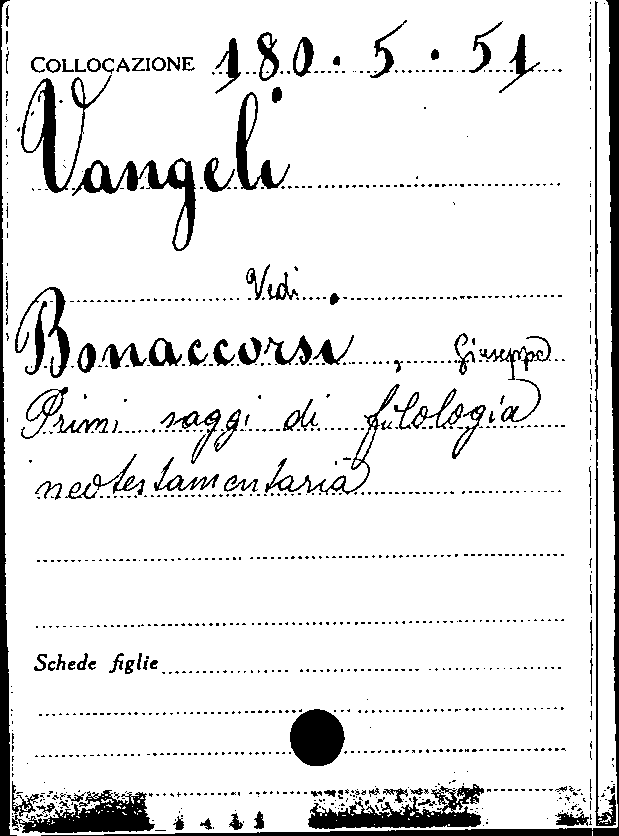 COLLOCAZIONE 180.5.51
Vangeli
Vedi
Bonaccorsi, Giuseppe
Primi saggi di filologia
neotestamentaria
Schede figlie